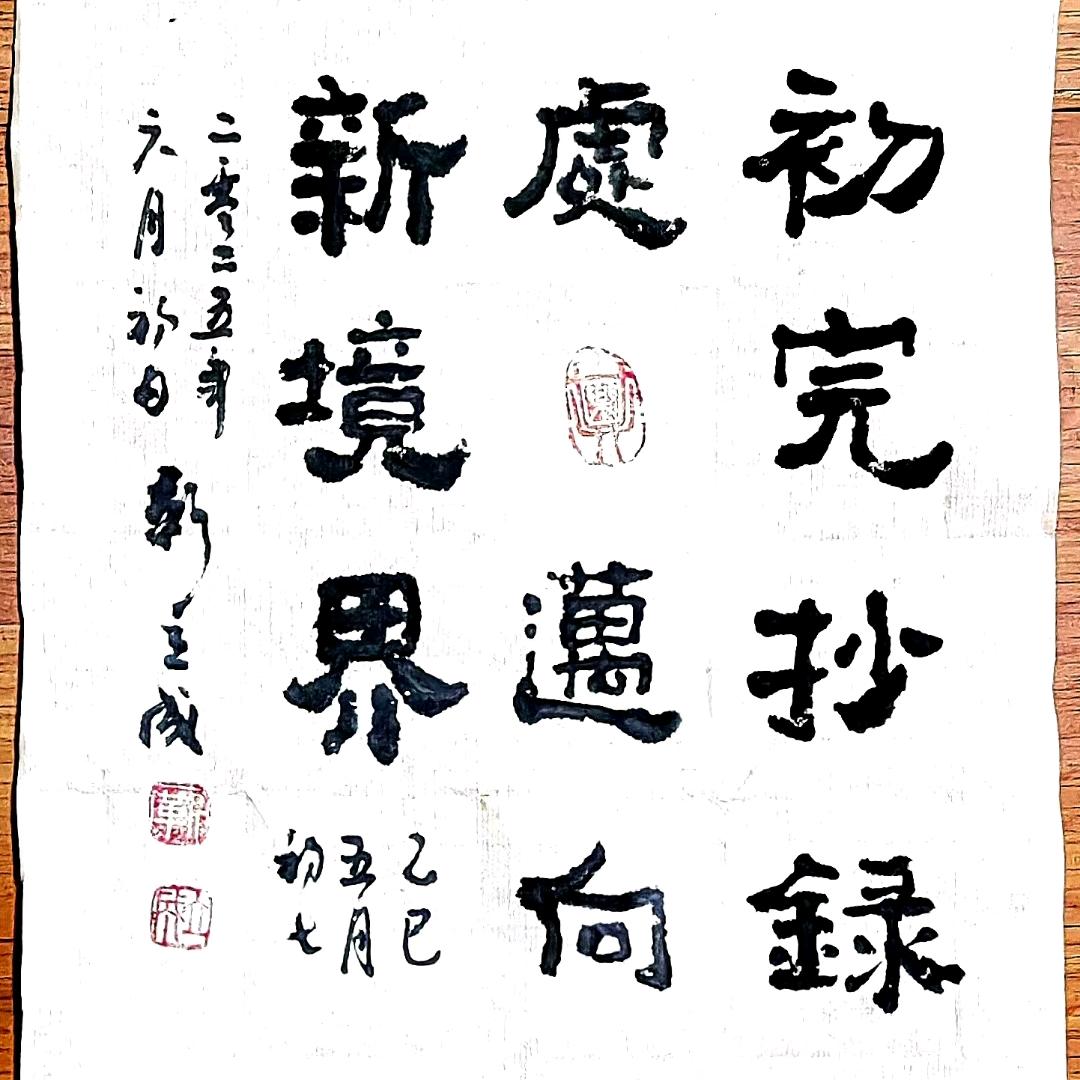 初完抄録
處邁向
新境界
乙巳
五月
初七
二零二五年
六月初日
靳立成